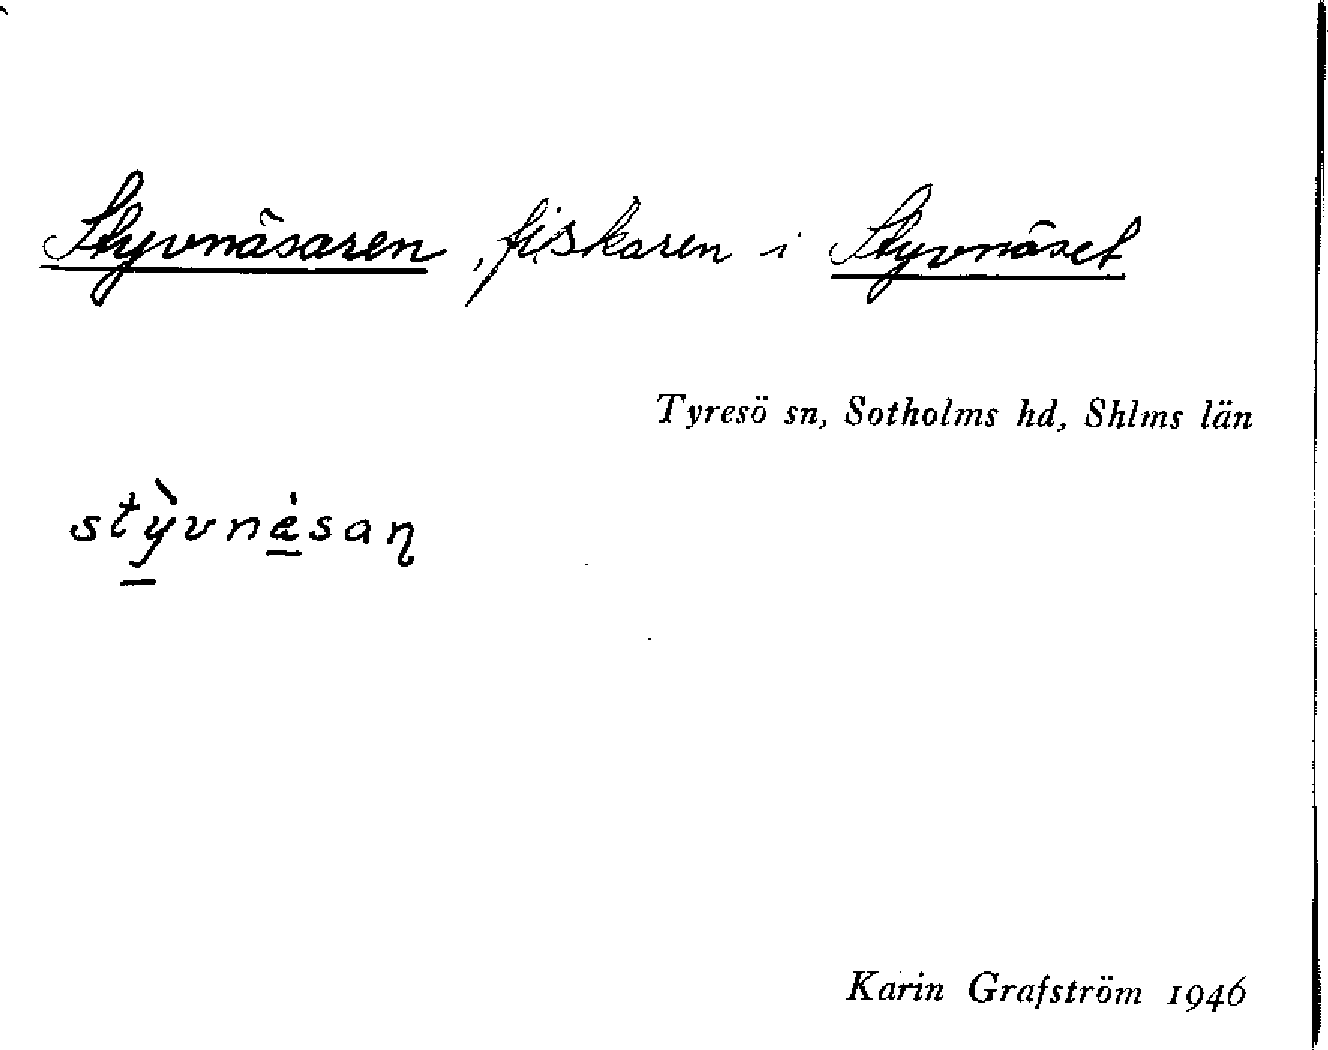 Styvnäsaren, fiskaren i Styvnäset
Tyresö sn, Sotholms hd, Shlms län
stỳvnä́saɳ
Karin Grafström 1946